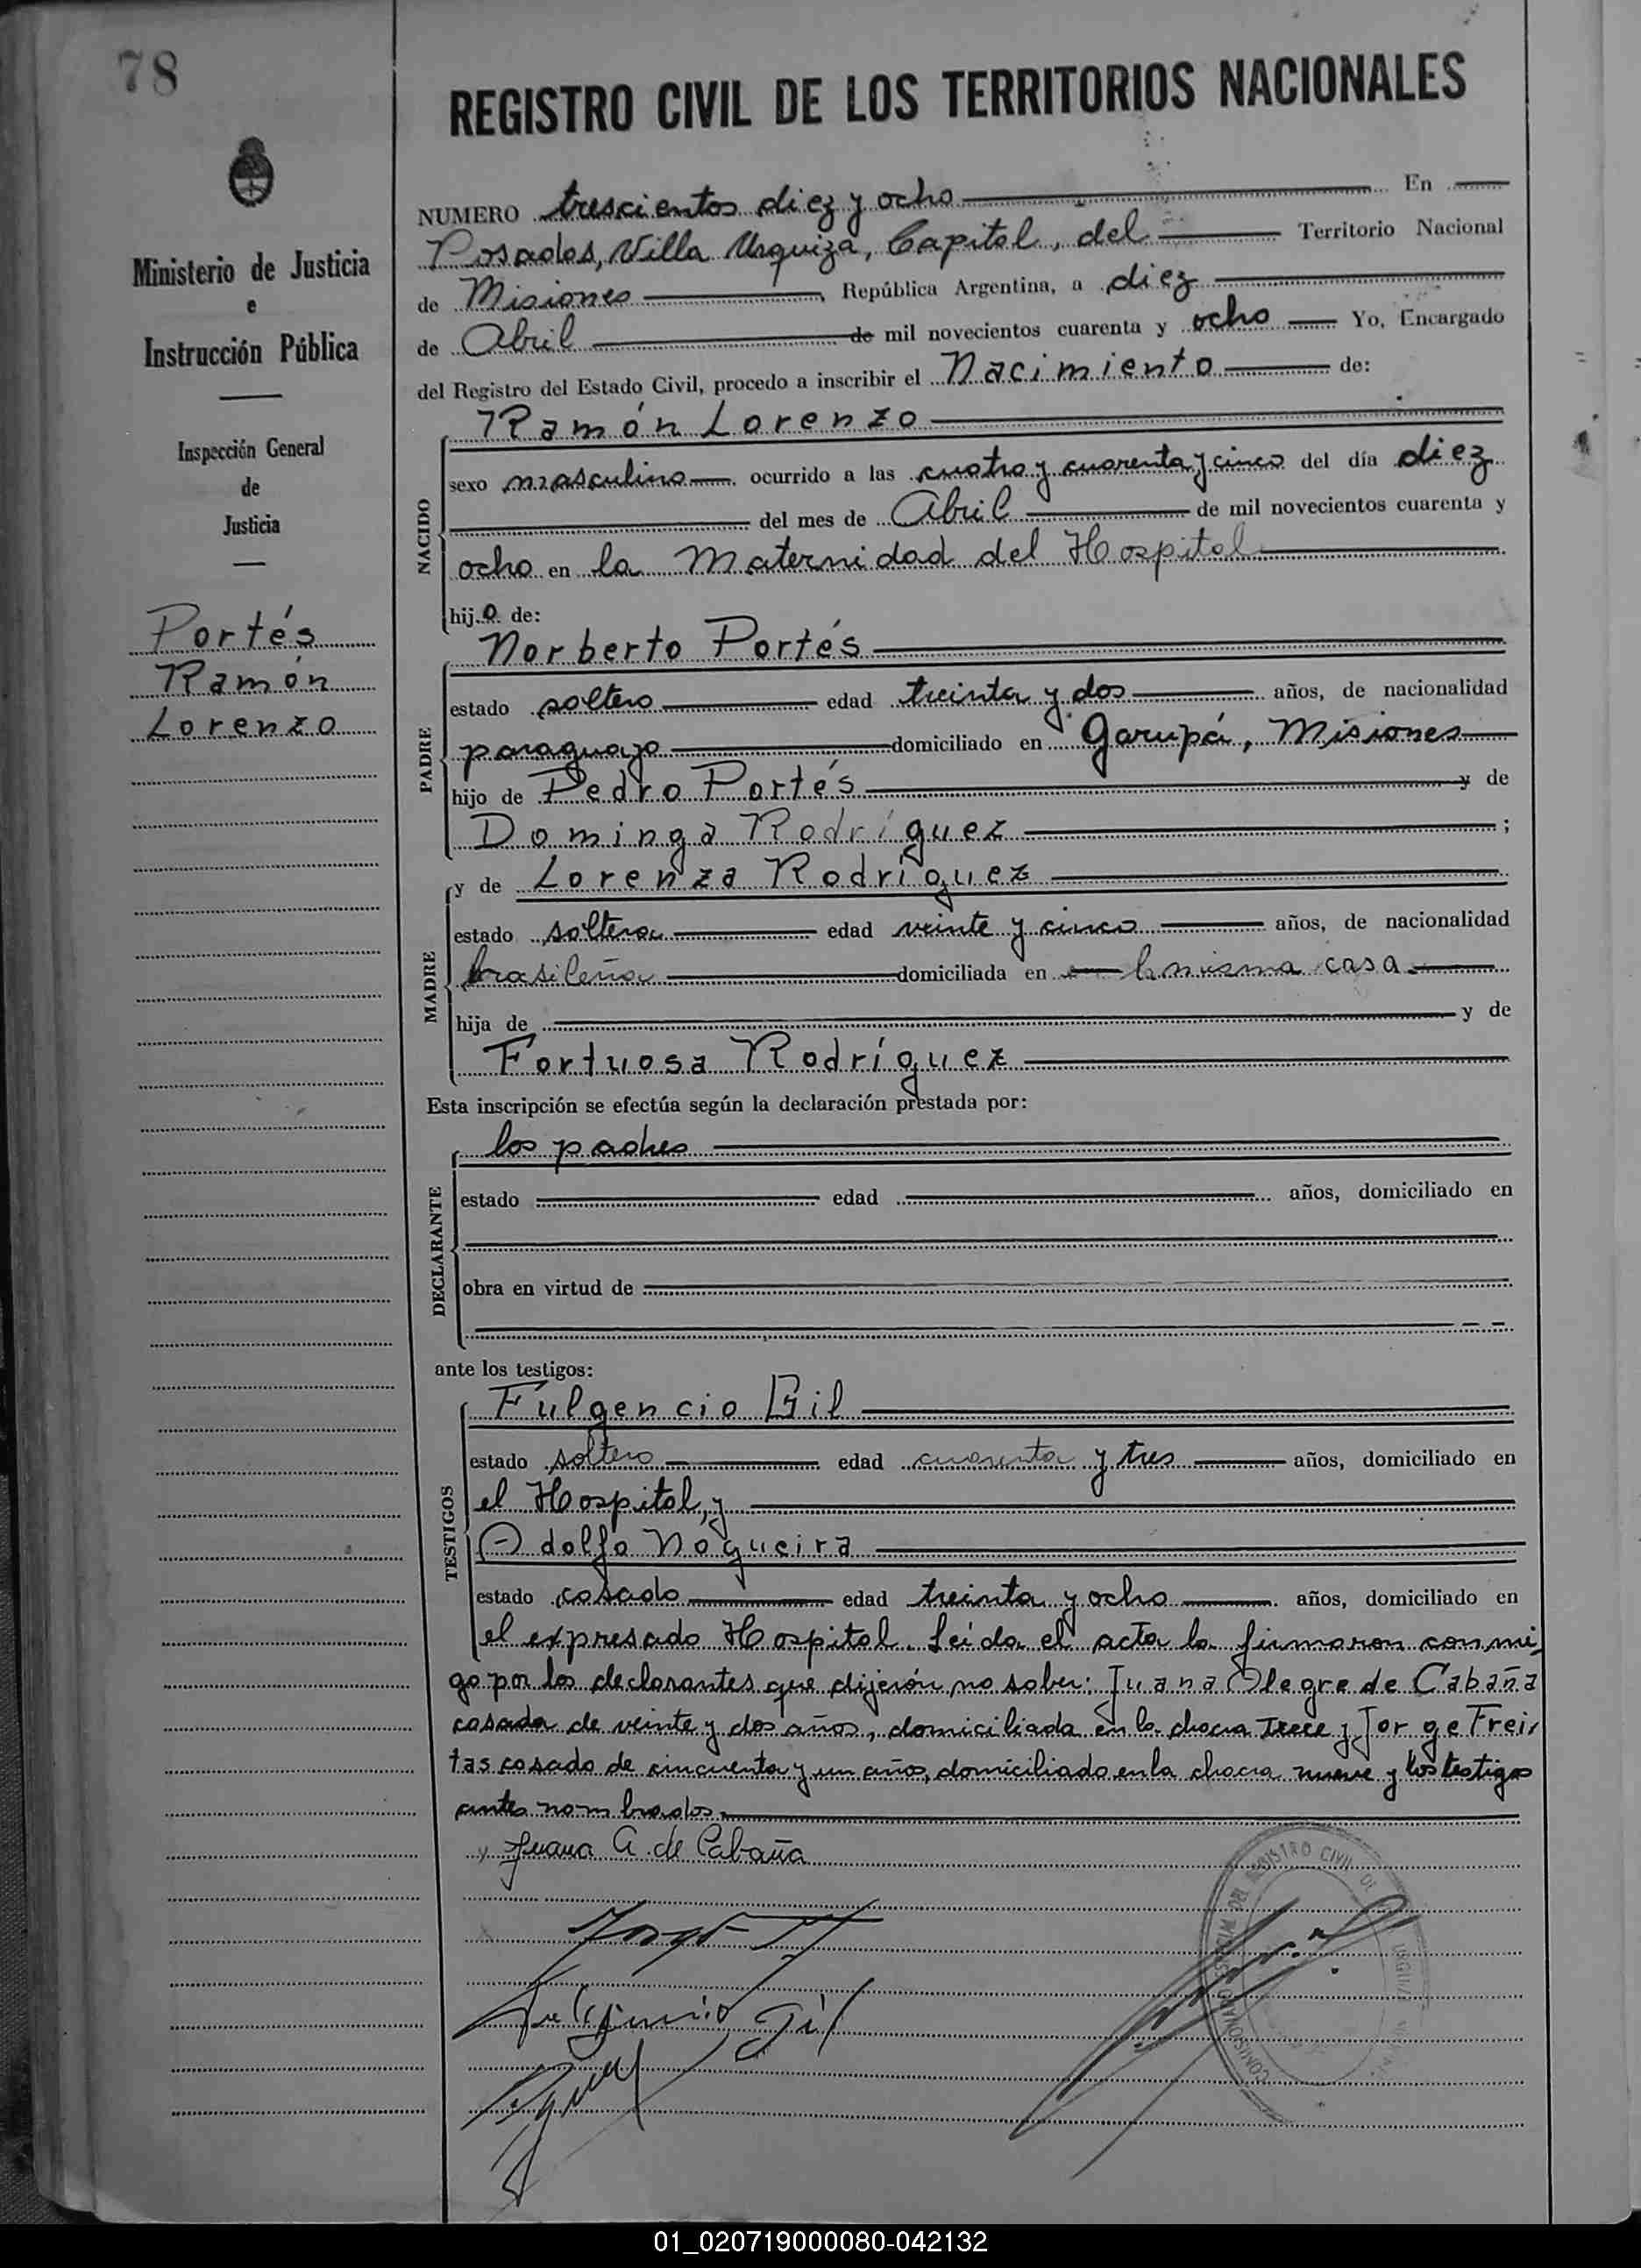 78
REGISTRO CIVIL DE LOS TERRITORIOS NACIONALES
Ministerio de Justicia
e
Instrucción Pública
Inspección General
de
Justicia
Portés
Ramón
Lorenzo
NUMERO trescientos diez y ocho En
Posadas, Villa Urquiza, Capital, del Territorio Nacional
de Misiones, República Argentina, a diez
de Abril de mil novecientos cuarenta y ocho Yo, Encargado
del Registro del Estado Civil, procedo a inscribir el Nacimiento de:
NACIDO
Ramón Lorenzo
sexo masculino ocurrido a las cuatro y cuarenta y cinco del día diez
del mes de Abril de mil novecientos cuarenta y
ocho en la Maternidad del Hospital
hijo de:
PADRE
Norberto Portés
estado soltero edad treinta y dos años, de nacionalidad
paraguayo domiciliado en Garupá, Misiones
hijo de Pedro Portés y de
Dominga Rodríguez ;
MADRE
y de Lorenza Rodríguez
estado soltera edad veinte y cinco años, de nacionalidad
brasileña domiciliada en la misma casa
hija de y de
Fortuosa Rodríguez
Esta inscripción se efectúa según la declaración prestada por:
DECLARANTE
los padres
estado edad años, domiciliado en
obra en virtud de
ante los testigos:
TESTIGOS
Fulgencio Gil
estado soltero edad cuarenta y tres años, domiciliado en
el Hospital, y
Adolfo Nogueira
estado casado edad treinta y ocho años, domiciliado en
el expresado Hospital. Leída el acta la firmaron conmi
go por los declarantes que dijerón no saber: Juana Alegre de Cabaña
casada de veinte y dos años, domiciliada en la chacra trece y Jorge Frei
tas casado de cincuenta y un años, domiciliado en la chacra nueve y los testigos
antes nombrados.
Juana A. de Cabaña
Fulgencio Gil
REGISTRO CIVIL
01_020719000080-042132